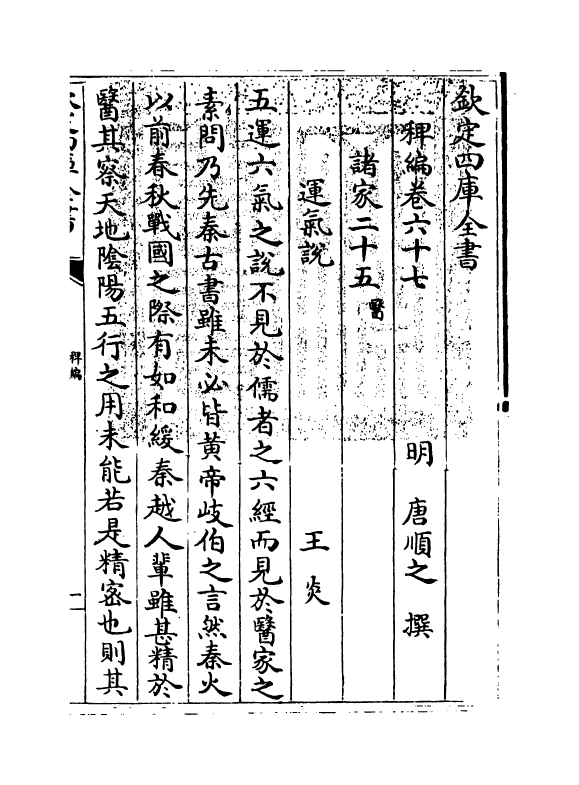 欽定四庫全書
稗編卷六十七
明 唐順之 撰
諸家二十五 醫
運氣説
王炎
五運六氣之説不見於儒者之六經而見於醫家之
素問乃先秦古書雖未必皆黄帝岐伯之言然秦火
以前春秋戰國之際有如和緩秦越人輩雖甚精於
醫其察天地陰陽五行之用未能若是精密也則其
稗編
一